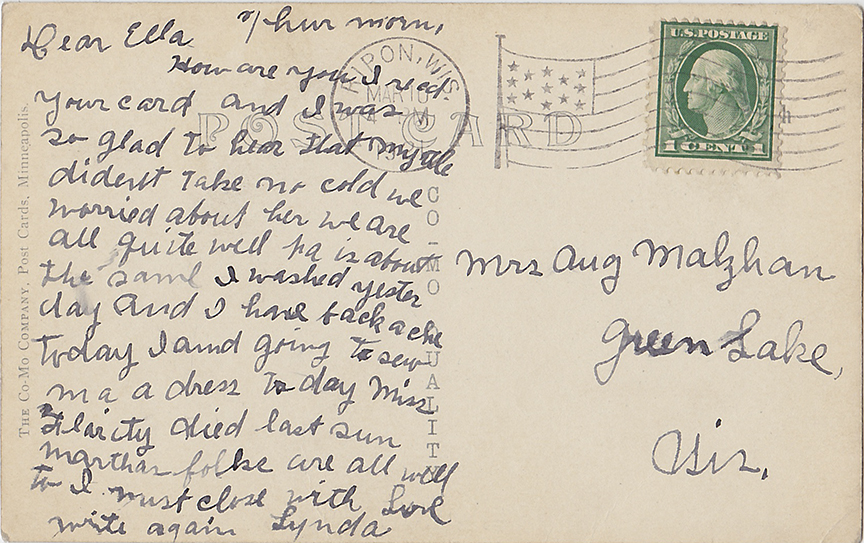 thur morn,
Dear Ella
How are you I recd
your card and I was
so glad to hear that Myrtle
dident take no cold we
worried about her we are
all quite well pa is about
the same I washed yester
day and I have back ache
today I amd going to sew
ma a dress to day Miss
died last sun
marthas folkse are all well
to I must close with Love
write again Lynda
POST CARD
CO-MO
QUALITY
THE CO-MO COMPANY, Post Cards, Minneapolis.
HURON, WIS.
MAR 16
M
U.S. POSTAGE
1 CENT 1
Mrs Aug Malzhan
Green Lake,
Wis,